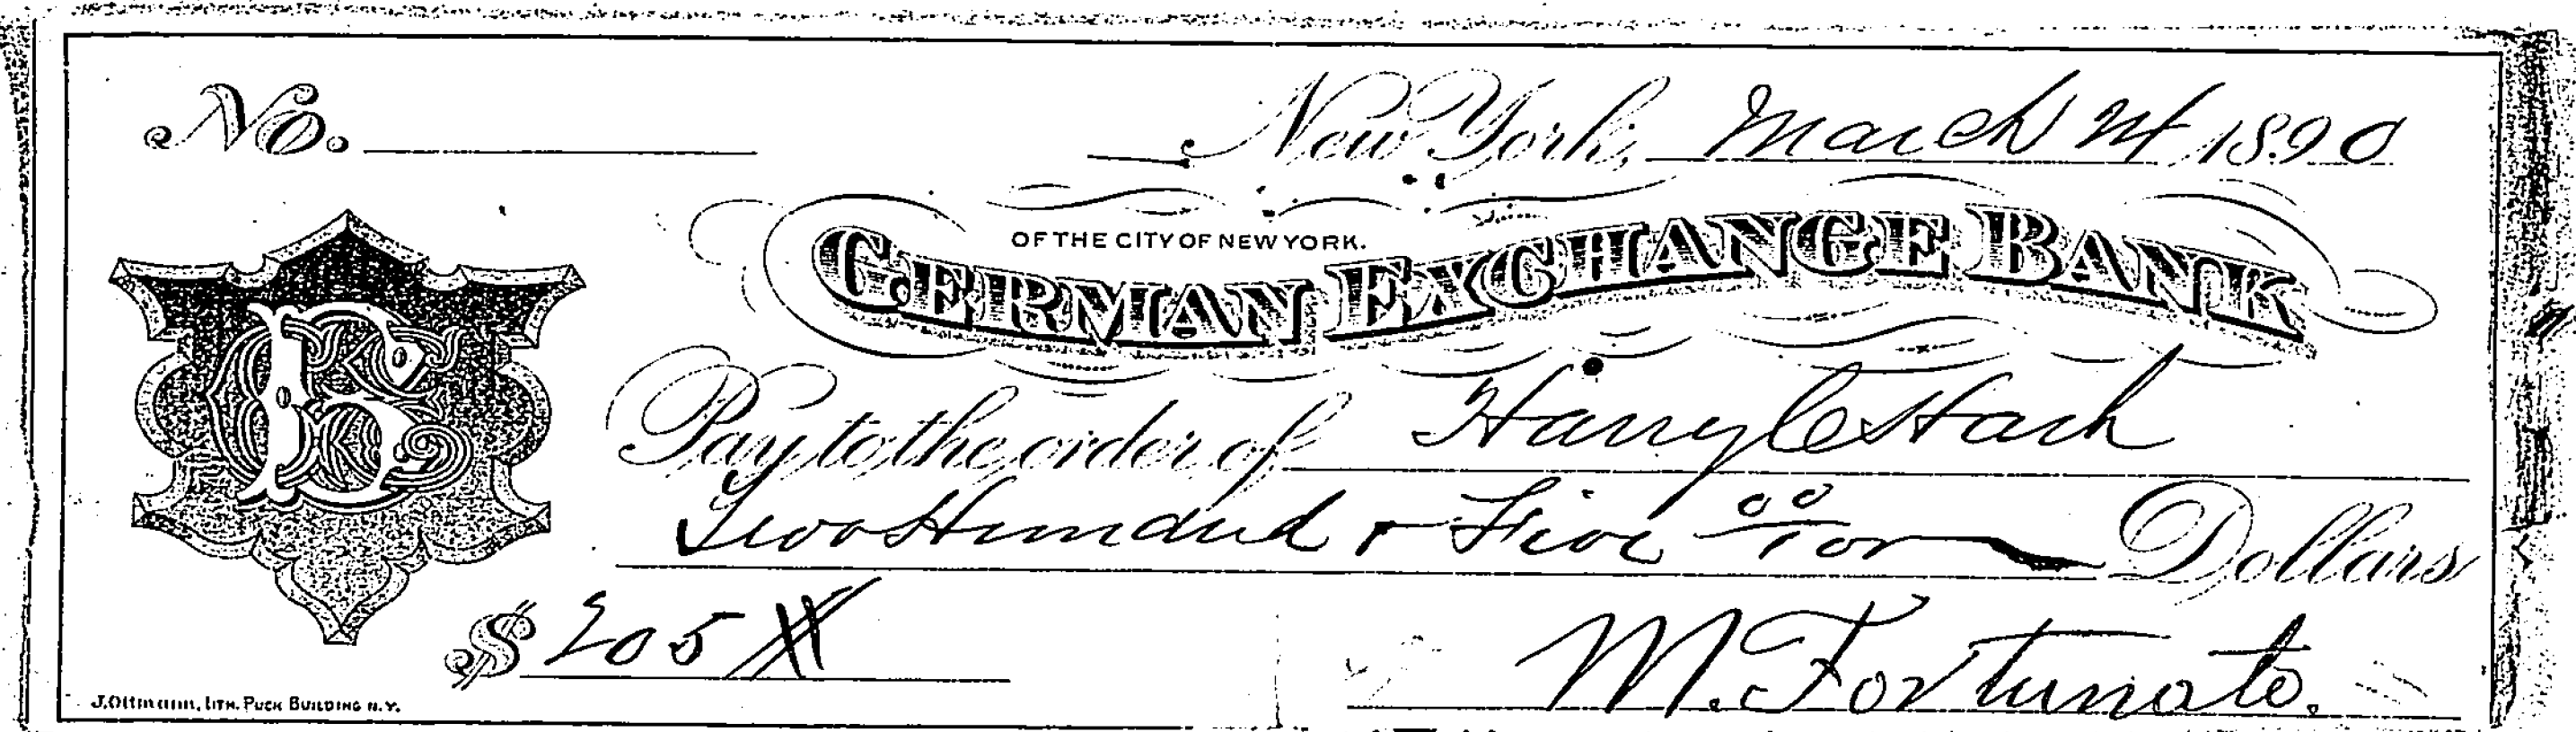 No.
New York, March 24 1890
OF THE CITY OF NEW YORK.
GERMAN EXCHANGE BANK
Pay to the order of Harry
Two Hundred & Five 00/100 Dollars
$ 205
M. Fortunato.
J. Ottmann, LITH. PUCK BUILDING N.Y.